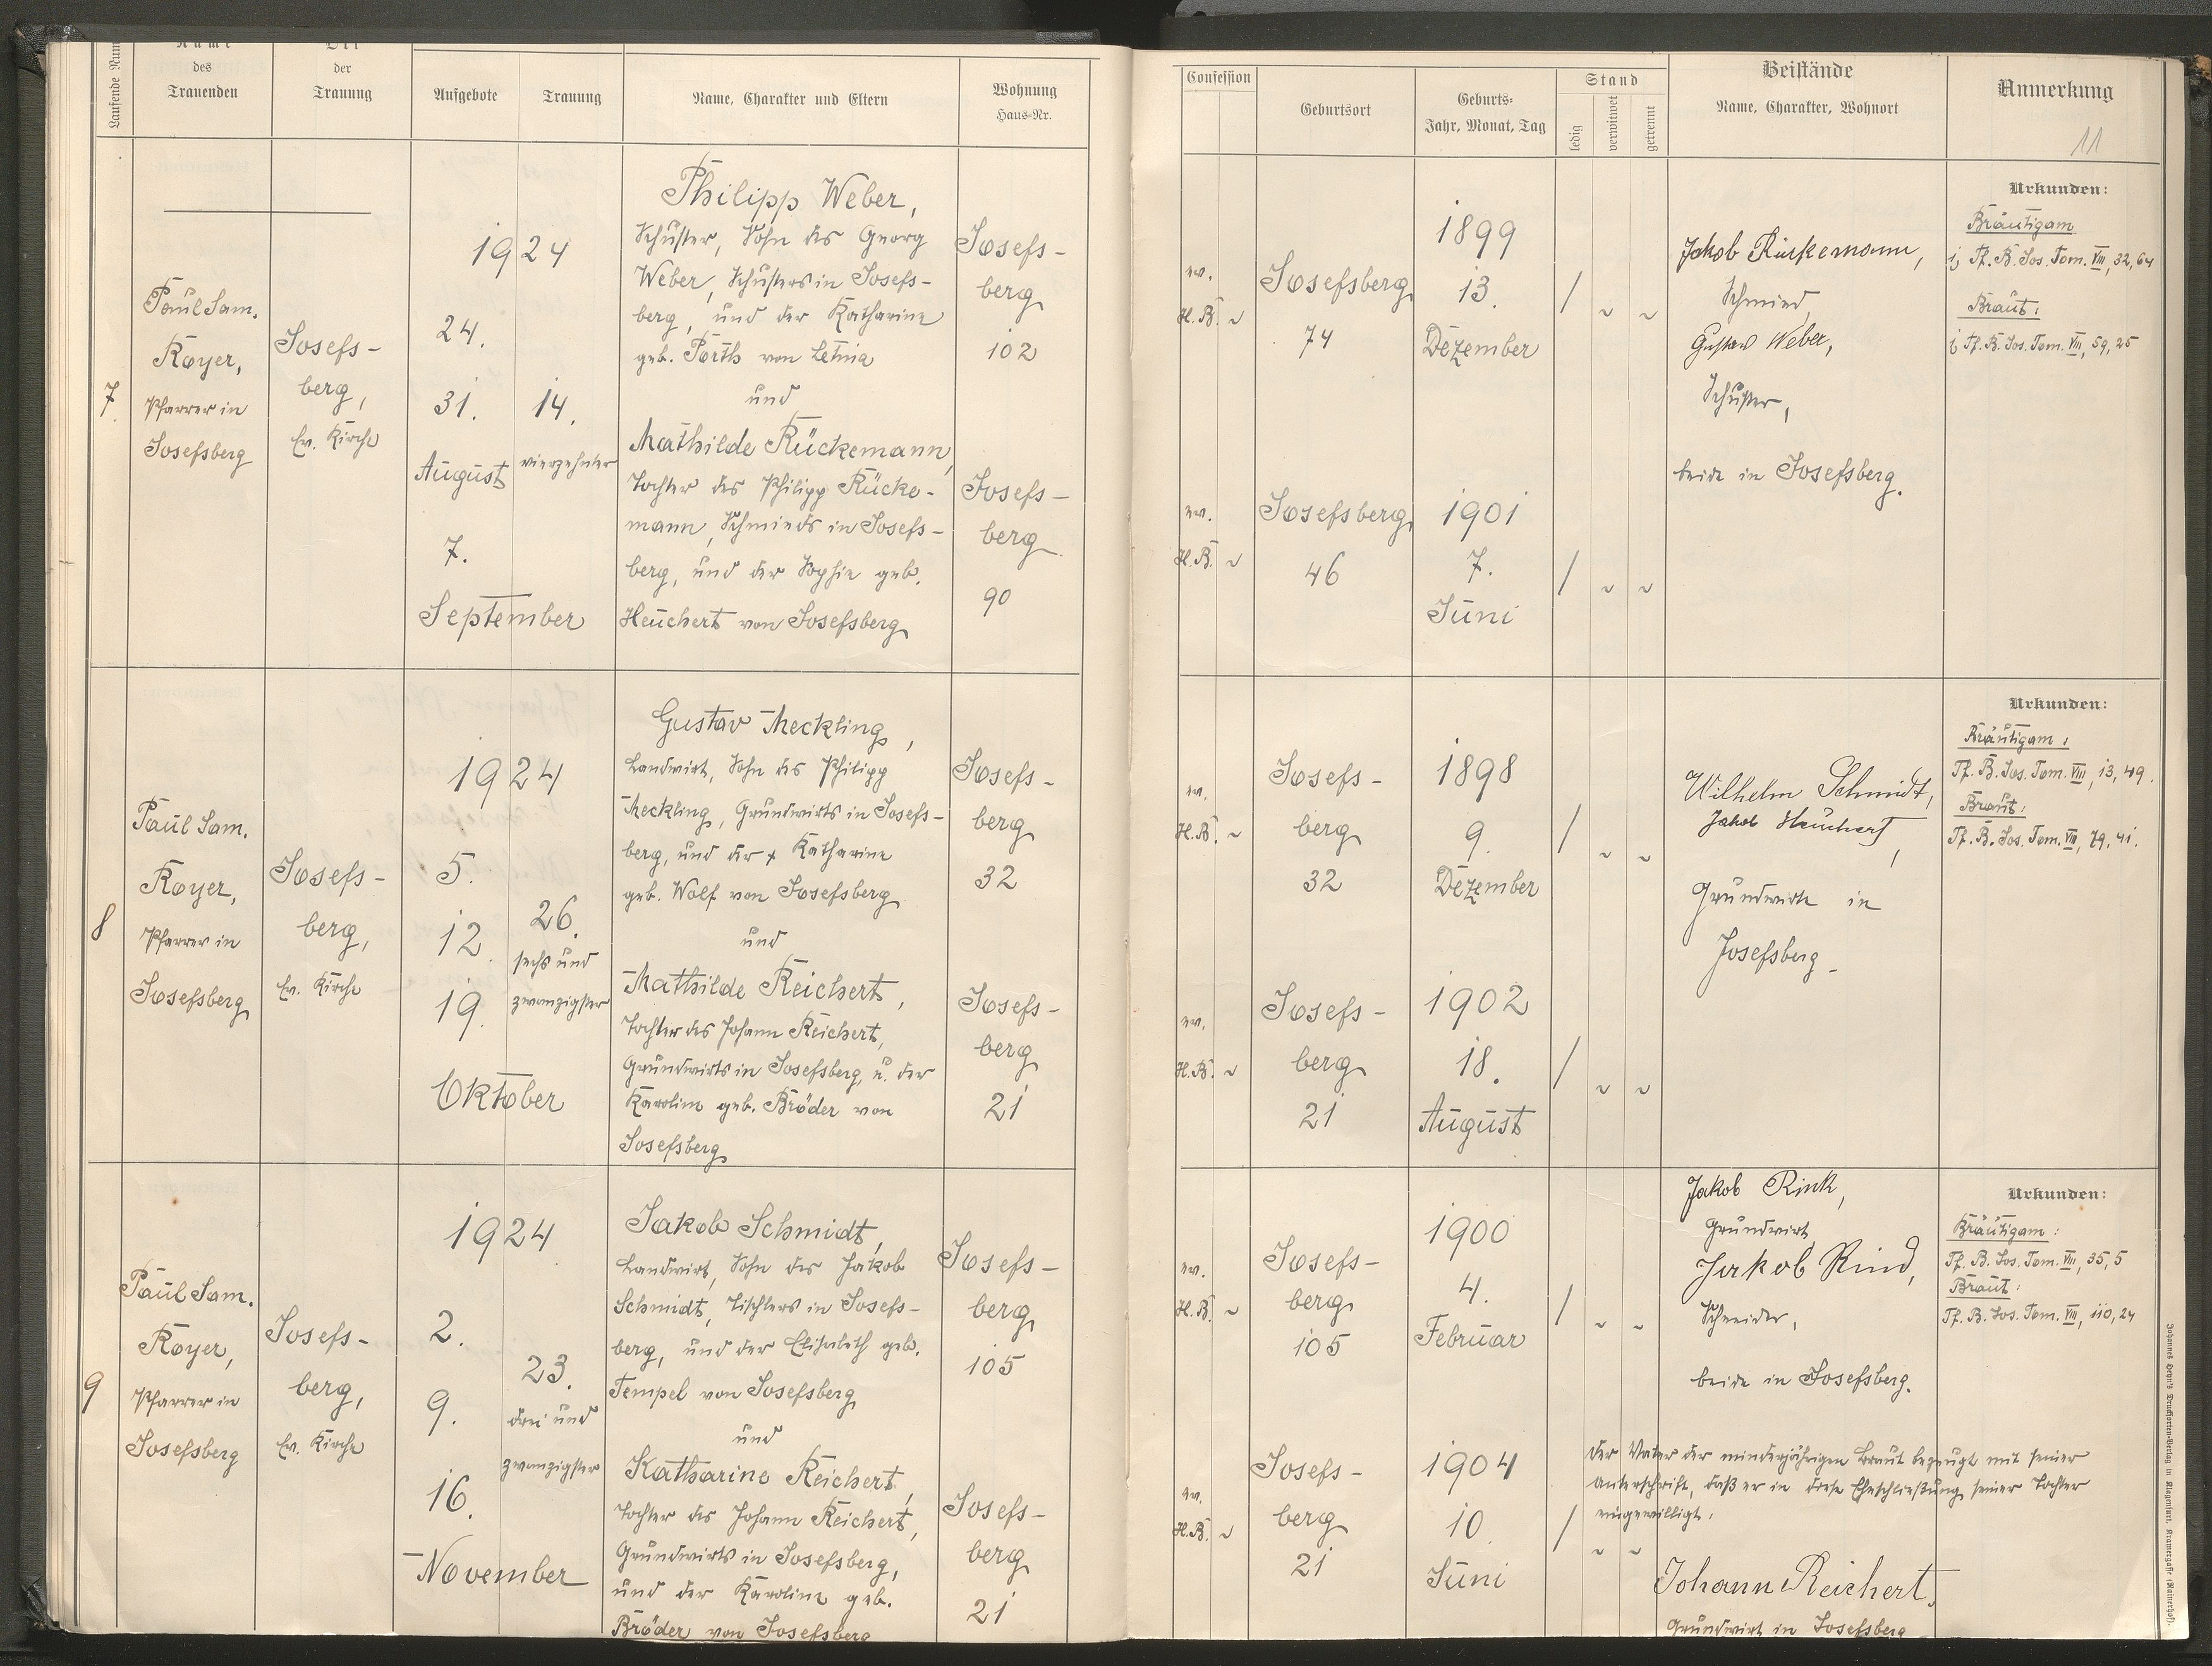 Laufende Num
Name
des
Trauenden
Ort
der
Trauung
Aufgebote
Trauung
Name, Charakter und Eltern
Wohnung
Haus-Nr.
Confession
Geburtsort
Geburts-
Jahr, Monat, Tag
Stand
ledig
verwitwet
getrennt
Beistände
Name, Charakter, Wohnort
Anmerkung
11
7.
Paul Sam.
Royer,
Pfarrer in
Josefsberg
Josefs-
berg,
Ev. Kirche
1924
24.
31.
August
7.
September
14.
vierzehnter
Philipp Weber,
Schuster, Sohn des Georg
Weber, Schusters in Josefs-
berg, und der Katharine
geb. Porth von Letnia
und
Mathilde Rückemann,
Tochter des Philipp Rücke-
mann, Schmieds in Josefs-
berg, und der Sophie geb.
Heuchert von Josefsberg
Josefs-
berg
102
Josefs-
berg
90
ev.
H.B.
Josefsberg
74
1899
13.
Dezember
ev.
H.B.
Josefsberg
46
1901
7.
Juni
Jakob Rückemann,
Schmied
Gustav Weber,
Schuster,
beide in Josefsberg.
Urkunden:
Bräutigam
Pf. B. Jos. Tom. VIII, 32, 64
Braut:
Pf. B. Jos. Tom. VIII, 59, 25
8
Paul Sam.
Royer,
Pfarrer in
Josefsberg
Josefs-
berg,
Ev. Kirche
1924
5.
12.
19.
Oktober
26.
sechs und
zwanzigster
Gustav Meckling,
Landwirt, Sohn des Philipp
Meckling, Grundwirts in Josefs-
berg, und der + Katharine
geb. Wolf von Josefsberg
und
Mathilde Reichert,
Tochter des Johann Reichert,
Grundwirts in Josefsberg, u. der
Karoline geb. Bröder von
Josefsberg
Josefs-
berg
32
Josefs-
berg
21
ev.
H.B.
Josefs-
berg
32
1898
9.
Dezember
ev.
H.B.
Josefs-
berg
21
1902
18.
August
Wilhelm Schmidt,
Jakob Heuchert,
Grundwirte in
Josefsberg
Urkunden:
Bräutigam:
Pf. B. Jos. Tom. VIII, 13, 49.
Braut:
Pf. B. Jos. Tom. VIII, 79, 41.
9
Paul Sam.
Royer,
Pfarrer in
Josefsberg
Josefs-
berg,
Ev. Kirche
1924
2.
9.
16.
November
23.
drei und
zwanzigster
Jakob Schmidt,
Landwirt, Sohn des Jakob
Schmidt, Tischlers in Josefs-
berg, und der Elisabeth geb.
Tempel von Josefsberg
und
Katharine Reichert,
Tochter des Johann Reichert,
Grundwirts in Josefsberg,
und der Karoline geb.
Bröder von Josefsberg
Josefs-
berg
105
Josefs-
berg
21
ev.
H.B.
Josefs-
berg
105
1900
4.
Februar
ev.
H.B.
Josefs-
berg
21
1904
10.
Juni
Jakob Rink,
Grundwirt
Jakob Rind,
Schneider,
beide in Josefsberg.
Der Vater der minderjährigen Braut bezeugt mit seiner
Unterschrift, daß er in diese Eheschließung seiner Tochter
eingewilligt.
Johann Reichert,
Grundwirt in Josefsberg
Urkunden:
Bräutigam:
Pf. B. Jos. Tom. VIII, 35, 5
Braut:
Pf. B. Jos. Tom. VIII, 110, 24
Johannes Heyn's Drucksorten-Verlag in Klagenfurt, Kramergasse (Rainerhof).